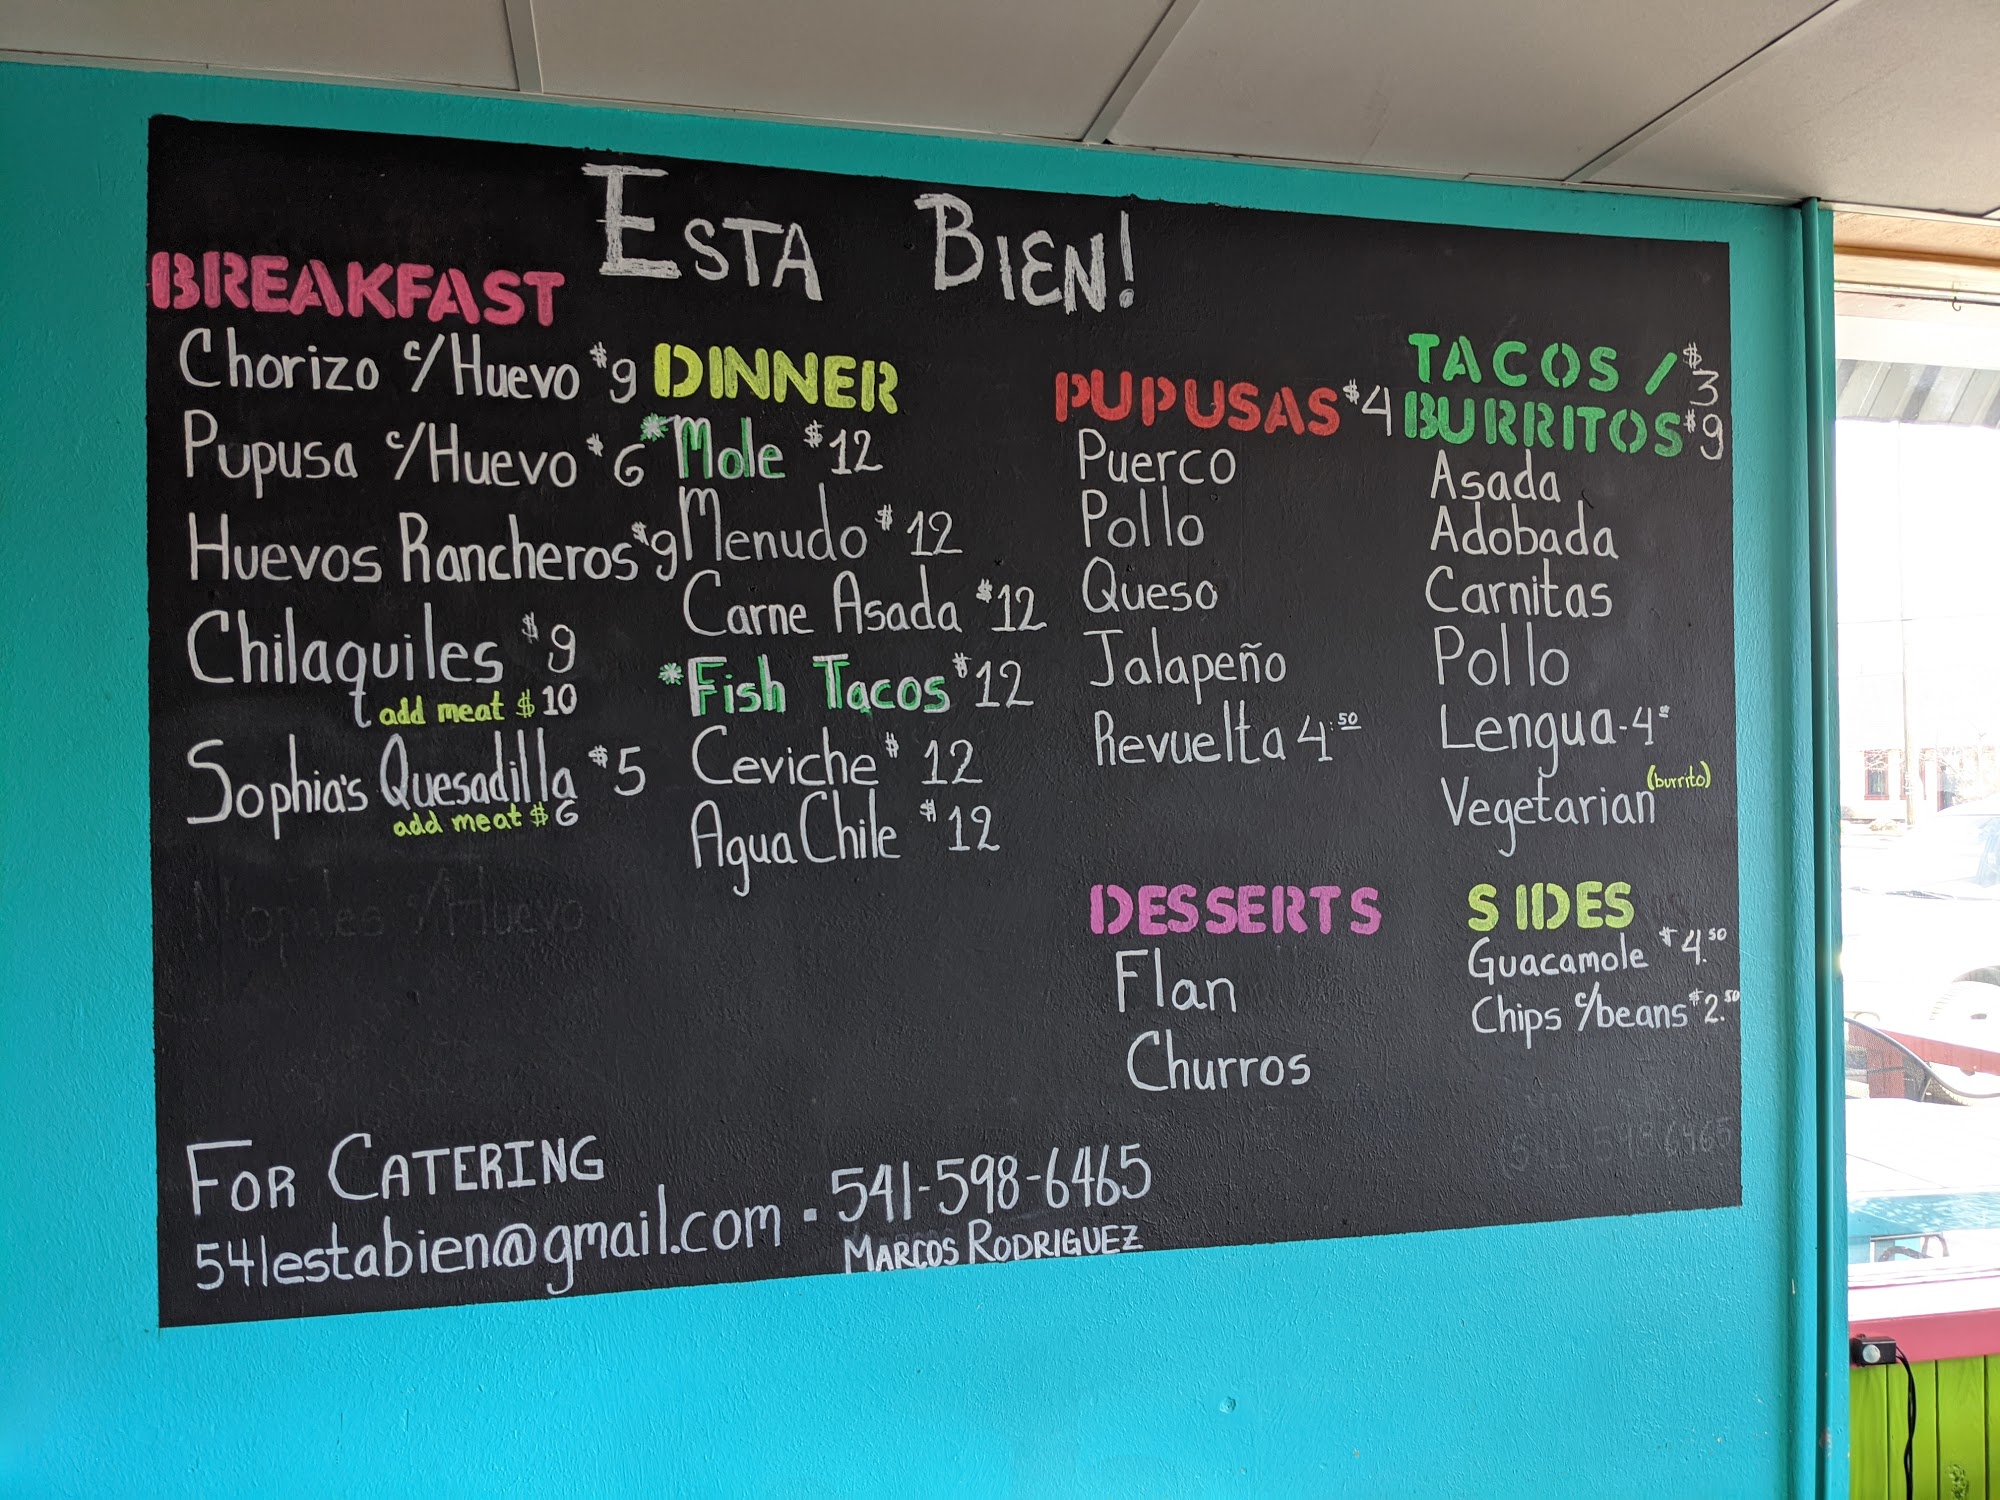 ESTA BIEN!
BREAKFAST
Chorizo c/Huevo $9
Pupusa c/Huevo $6
Huevos Rancheros $9
Chilaquiles $9
add meat $10
Sophia's Quesadilla $5
add meat $6
Nopales c/Huevo
DINNER
*Mole $12
Menudo $12
Carne Asada $12
*Fish Tacos $12
Ceviche $12
Agua Chile $12
PUPUSAS $4
Puerco
Pollo
Queso
Jalapeño
Revuelta 4.50
TACOS / $3
BURRITOS $9
Asada
Adobada
Carnitas
Pollo
Lengua-4
Vegetarian (burrito)
DESSERTS
Flan
Churros
SIDES
Guacamole $4.50
Chips c/beans $2.50
541 598 6465
FOR CATERING
541estabien@gmail.com - 541-598-6465
MARCOS RODRIGUEZ